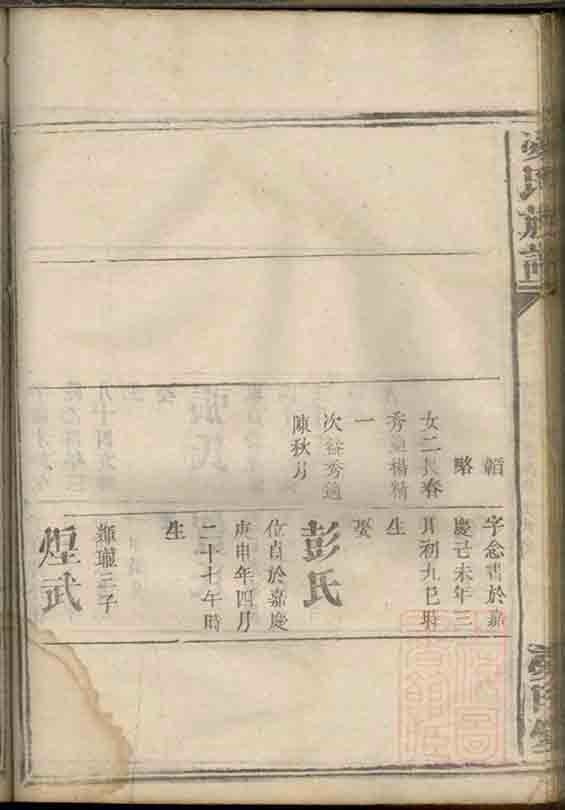 氏族譜
韜
略
女二長春
秀適楊精
一
次谷秀適
陳秋月
字念書於嘉
慶己未年三
月初九巳時
生
娶
彭氏
位貞於嘉慶
庚申年四月
二十七午時
生
三子
煌武